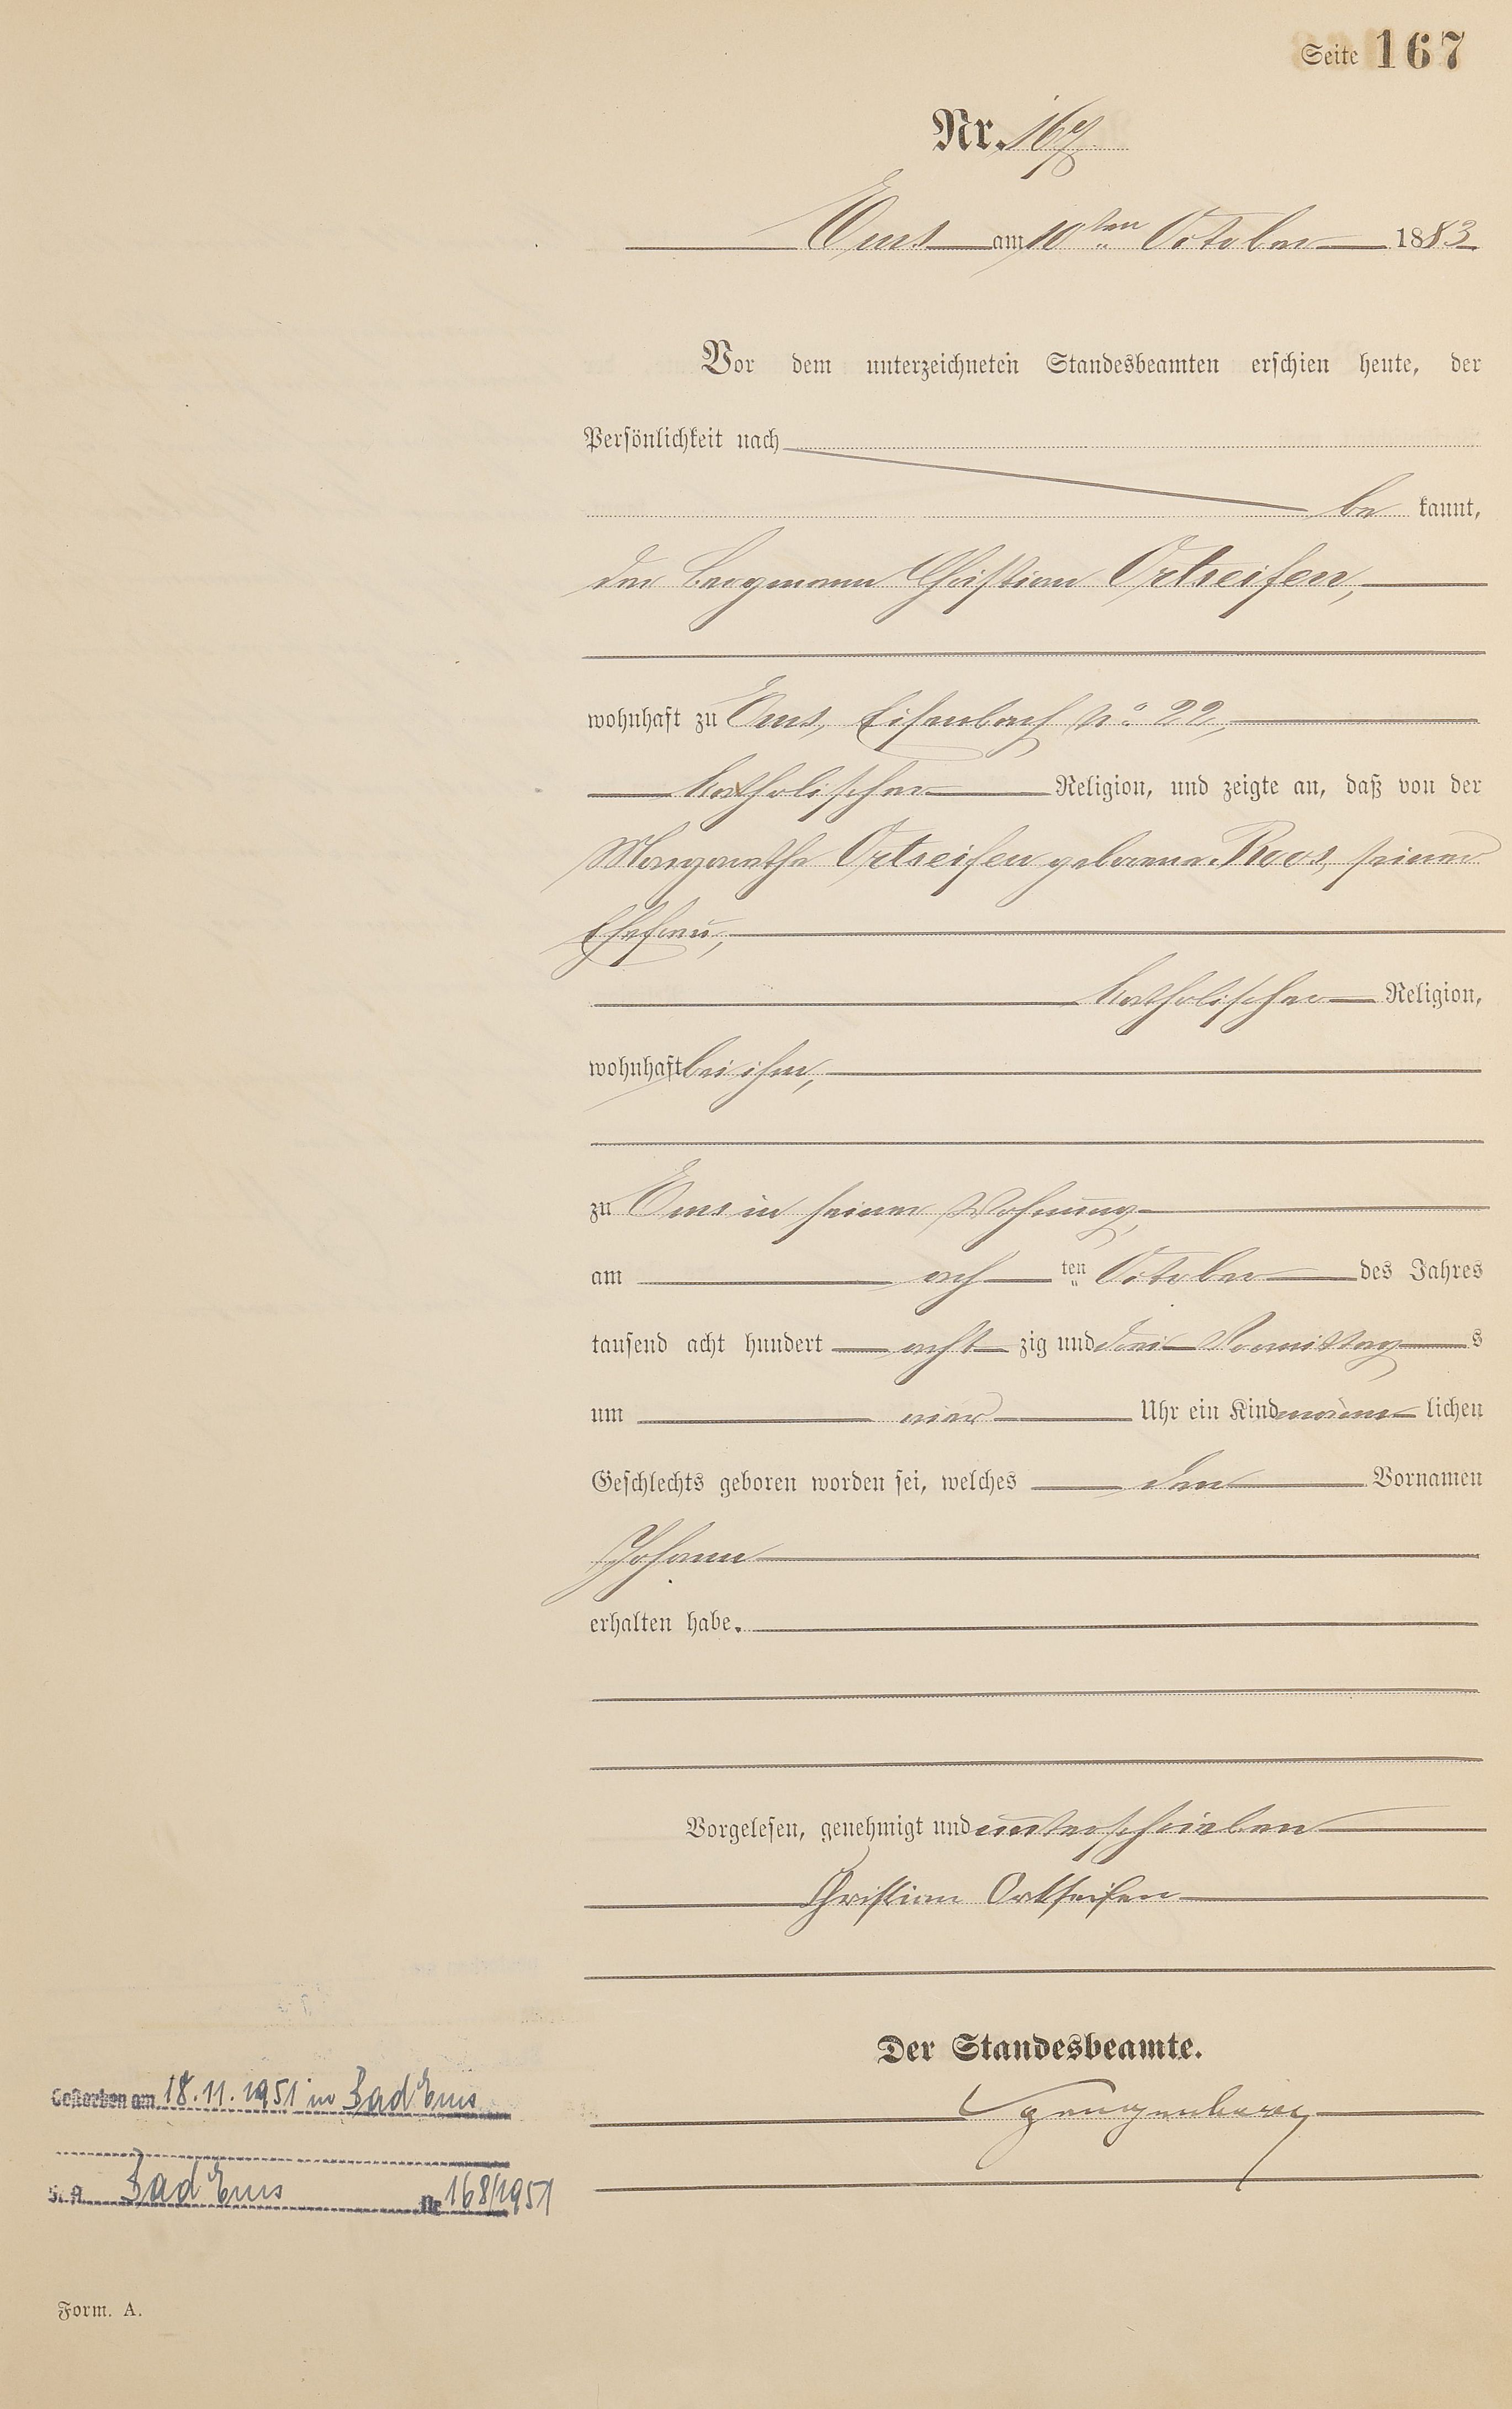 Seite 167
Nr. 167.
Ems am 10ten October 1883
Vor dem unterzeichneten Standesbeamten erschien heute, der
Persönlichkeit nach
be kannt,
der Bergmann Christian Ortseifen,
wohnhaft zu Ems, Eisenbach No. 22,
katholischer Religion, und zeigte an, daß von der
Margarethe Ortseifen geborene Roos, seiner
Ehefrau,
katholischer Religion,
wohnhaft bei ihm,
zu Ems in seiner Wohnung,
am ach ten October des Jahres
tausend acht hundert acht zig und drei Vormittag s
um vier Uhr ein Kind männ lichen
Geschlechts geboren worden sei, welches den Vornamen
Johann
erhalten habe.
Vorgelesen, genehmigt und unterschrieben
Christian Ortseifen
Der Standesbeamte.
Gestorben am 18.11.1951 in Bad Ems
St. A. Bad Ems Nr 168/1951
Form. A.